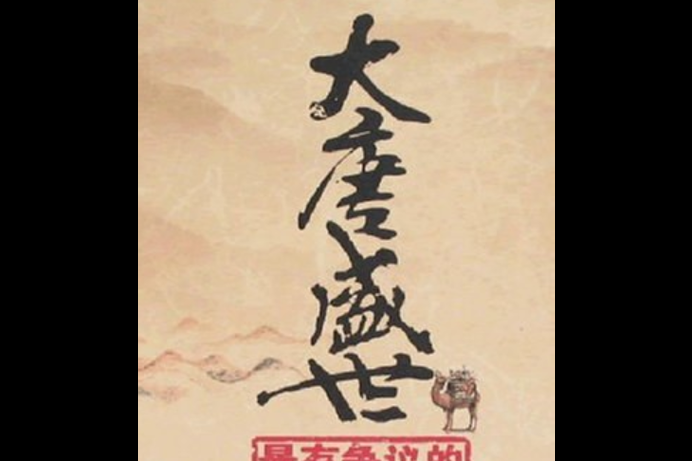 大唐盛世
最有争议的